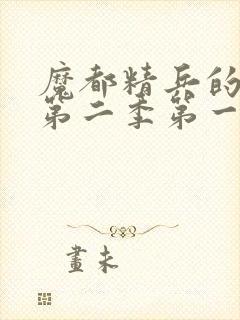 魔都精兵的
第二季第一
畫未